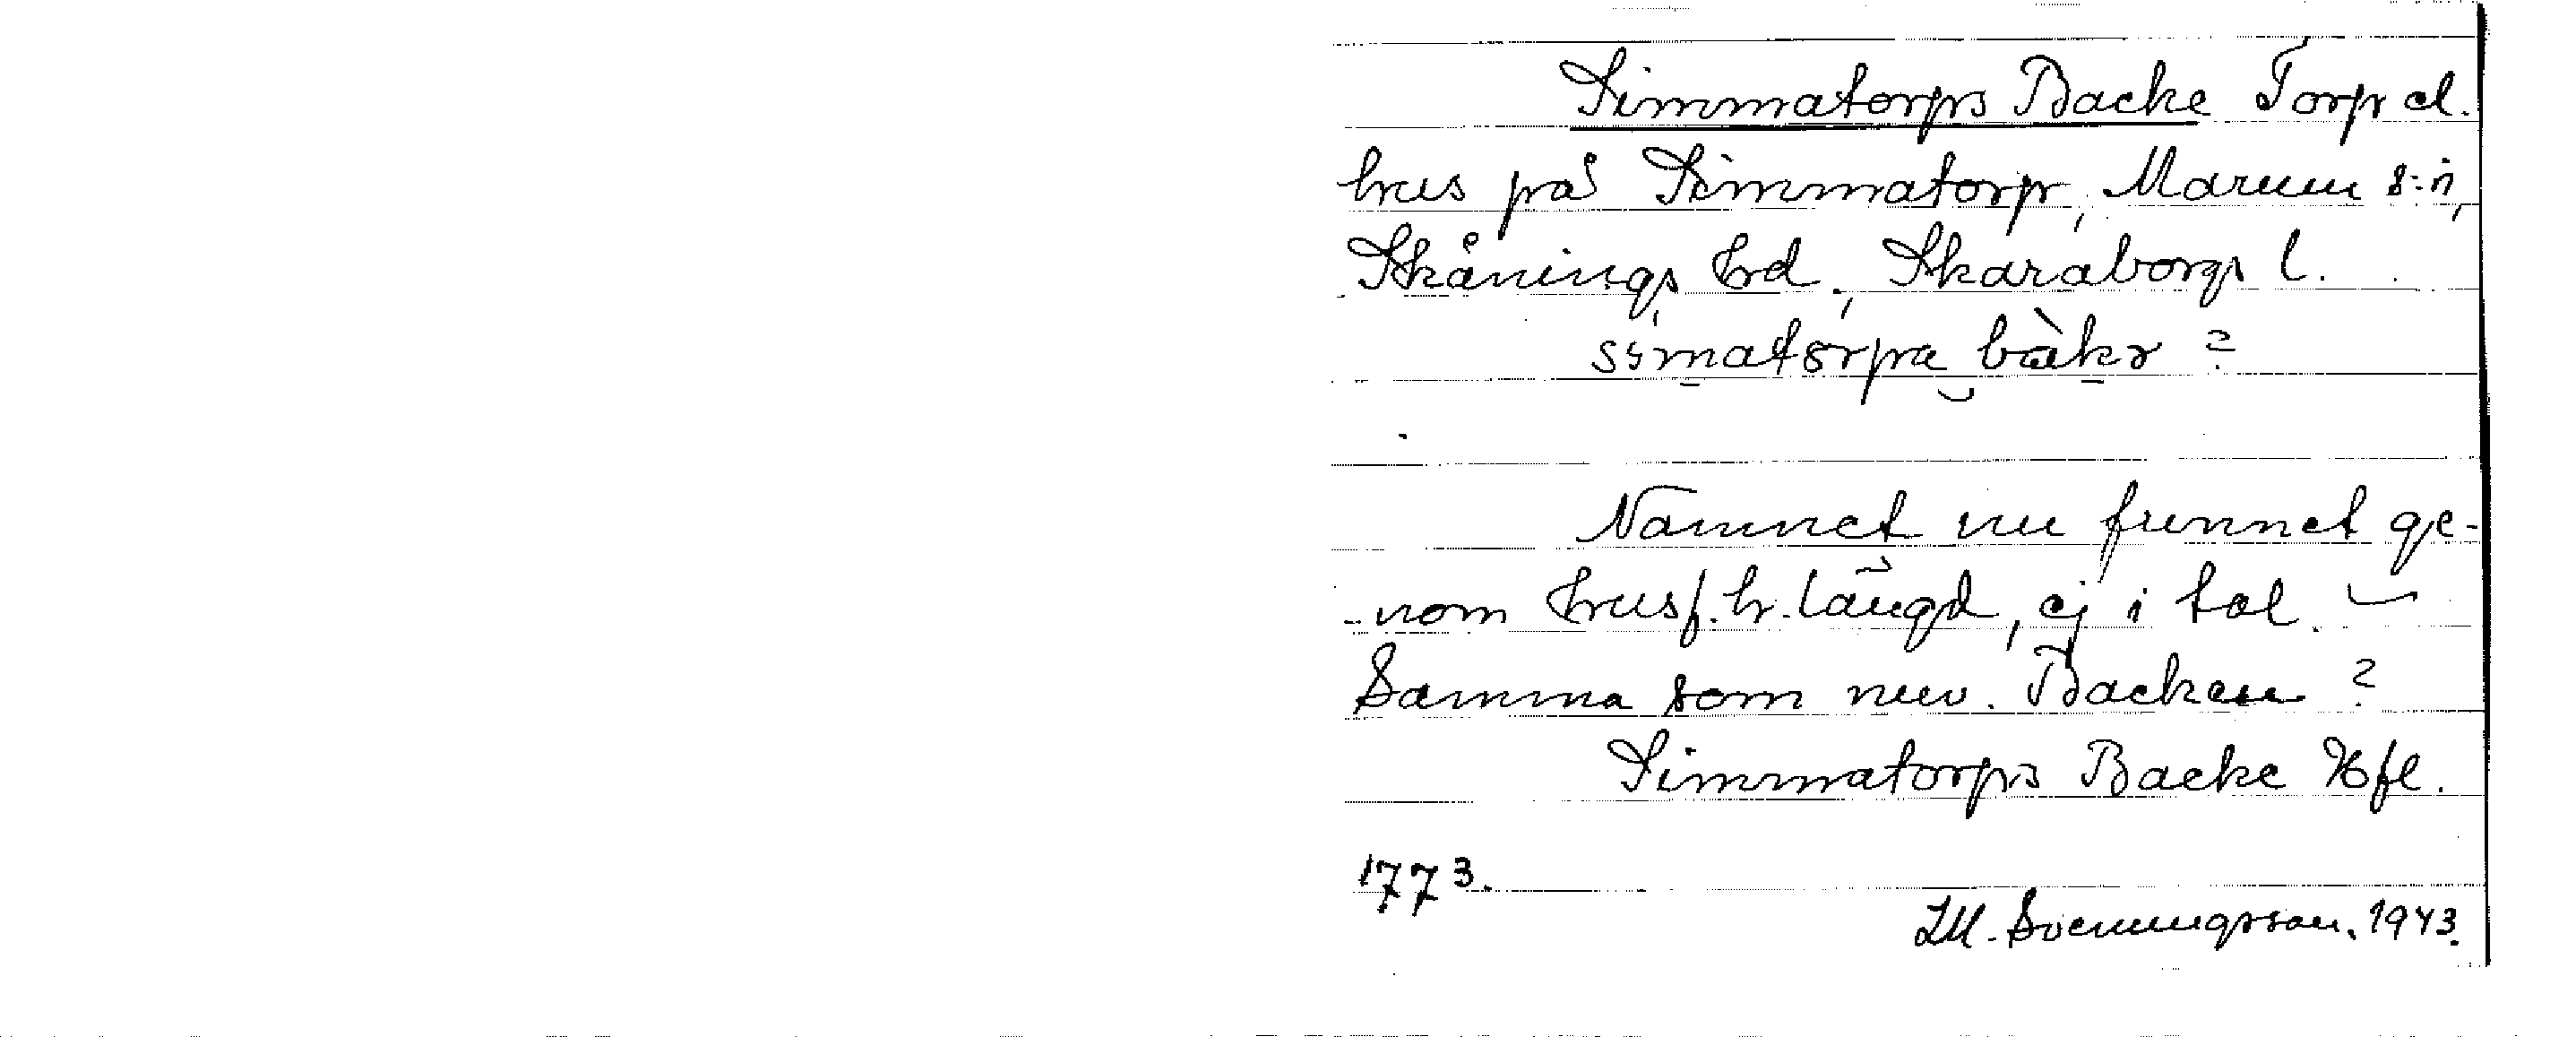 Simmatorps Backe Torp el.
hus på Simmatorp, Marum s:n,
Skånings hd., Skaraborgs l.
bàkɤ ?
Namnet nu funnet ge-
nom husf.h.längd, ej i tal.
Samma som nuv. Backen ?
Simmatorps Backe Hfl.
1773.
I.M. Svenungsson. 1943.